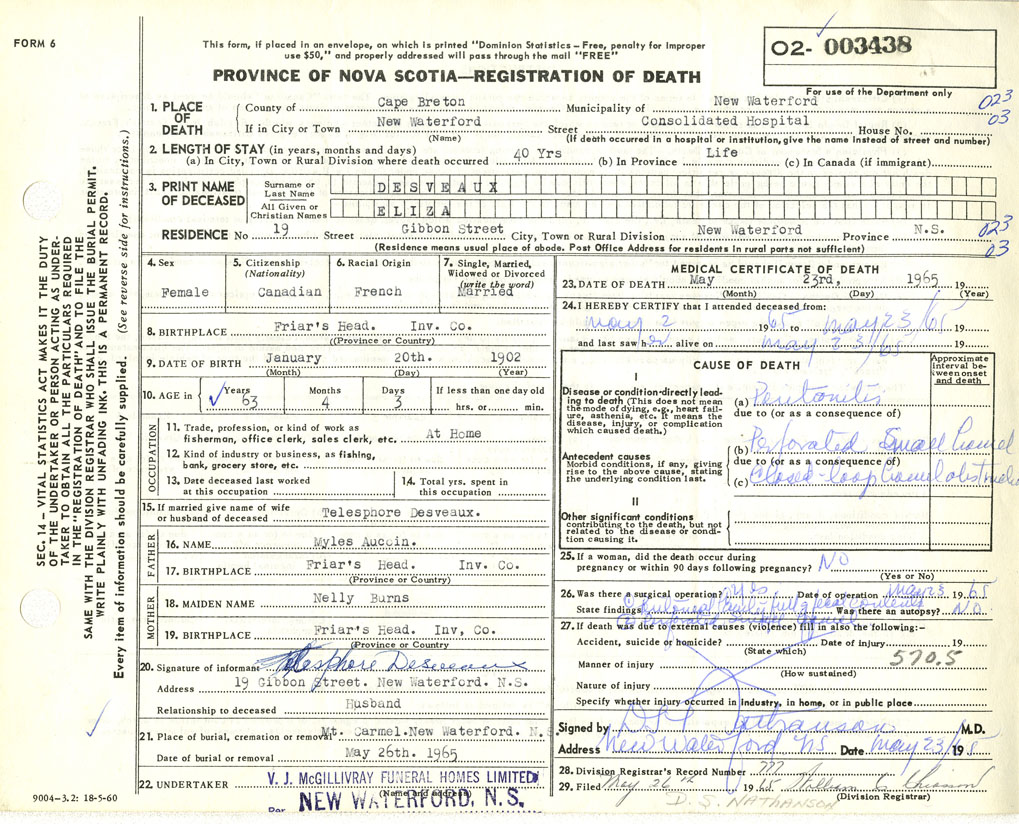 FORM 6
This form, if placed in an envelope, on which is printed "Dominion Statistics – Free, penalty for improper
use $50," and properly addressed will pass through the mail "FREE"
O2- 003438
For use of the Department only
PROVINCE OF NOVA SCOTIA—REGISTRATION OF DEATH
1. PLACE OF DEATH
County of Cape Breton Municipality of New Waterford
023
03
If in City or Town New Waterford Street Consolidated Hospital House No.
(Name) (If death occurred in a hospital or institution, give the name instead of street and number)
2. LENGTH OF STAY (in years, months and days)
(a) In City, Town or Rural Division where death occurred 40 Yrs (b) In Province Life (c) In Canada (if immigrant)
3. PRINT NAME OF DECEASED
Surname or Last Name DESVEAUX
All Given or Christian Names ELIZA
RESIDENCE No 19 Street Gibbon Street City, Town or Rural Division New Waterford Province N.S.
023
03
(Residence means usual place of abode. Post Office Address for residents in rural parts not sufficient)
4. Sex
Female
5. Citizenship
(Nationality)
Canadian
6. Racial Origin
French
7. Single, Married,
Widowed or Divorced
(write the word)
Married
8. BIRTHPLACE Friar's Head. Inv. Co.
((Province or Country)
9. DATE OF BIRTH January 20th. 1902
(Month) (Day) (Year)
10. AGE in
Years Months Days If less than one day old
63 4 3 hrs. or min.
OCCUPATION
11. Trade, profession, or kind of work as
fisherman, office clerk, sales clerk, etc. At Home
12. Kind of industry or business, as fishing,
bank, grocery store, etc.
13. Date deceased last worked
at this occupation
14. Total yrs. spent in
this occupation
15. If married give name of wife
or husband of deceased Telesphore Desveaux.
FATHER
16. NAME Myles Aucoin.
17. BIRTHPLACE Friar's Head. Inv. Co.
(Province or Country)
MOTHER
18. MAIDEN NAME Nelly Burns
19. BIRTHPLACE Friar's Head. Inv, Co.
(Province or Country)
20. Signature of informant Telesphore Desveaux
Address 19 Gibbon Street. New Waterford. N.S.
Relationship to deceased Husband
21. Place of burial, cremation or removal Mt. Carmel. New Waterford. N.S.
Date of burial or removal May 26th. 1965
22. UNDERTAKER V. J. McGILLIVRAY FUNERAL HOMES LIMITED
(Name and address)
Per NEW WATERFORD, N.S.
9004-3.2: 18-5-60
MEDICAL CERTIFICATE OF DEATH
23. DATE OF DEATH May 23rd, 1965 19
(Month) (Day) (Year)
24. I HEREBY CERTIFY that I attended deceased from:
May 2 1965 to May 23/65 19
and last saw her alive on May 23/65 19
CAUSE OF DEATH
Approximate
interval be-
tween onset
and death
I
Disease or condition directly lead-
ing to death (This does not mean
the mode of dying, e.g., heart fail-
ure, asthenia, etc. It means the
disease, injury, or complication
which caused death.)
(a) Peritonitis
due to (or as a consequence of)
Antecedent causes
Morbid conditions, if any, giving
rise to the above cause, stating
the underlying condition last.
(b) Perforated Small bowel
due to (or as a consequence of)
(c) Closed-loop bowel obstruction
II
Other significant conditions
contributing to the death, but not
related to the disease or condi-
tion causing it.
25. If a woman, did the death occur during
pregnancy or within 90 days following pregnancy? NO
(Yes or No)
26. Was there a surgical operation? Yes Date of operation May 23 1965
State findings Was there an autopsy? NO
27. If death was due to external causes (violence) fill in also the following:–
Accident, suicide or homicide? Date of injury 19
(State which)
570.5
Manner of injury
(How sustained)
Nature of injury
Specify whether injury occurred in industry, in home, or in public place
Signed by D.S. Nathanson M.D.
Address New Waterford NS Date May 23/65 19
28. Division Registrar's Record Number 777
29. Filed May 26th 1965
(Division Registrar)
D. S. NATHANSON
SEC. 14 – VITAL STATISTICS ACT MAKES IT THE DUTY
OF THE UNDERTAKER OR PERSON ACTING AS UNDER-
TAKER TO OBTAIN ALL THE PARTICULARS REQUIRED
IN THE "REGISTRATION OF DEATH" AND TO FILE THE
SAME WITH THE DIVISION REGISTRAR WHO SHALL ISSUE THE BURIAL PERMIT.
WRITE PLAINLY WITH UNFADING INK. THIS IS A PERMANENT RECORD.
Every item of information should be carefully supplied. (See reverse side for instructions.)